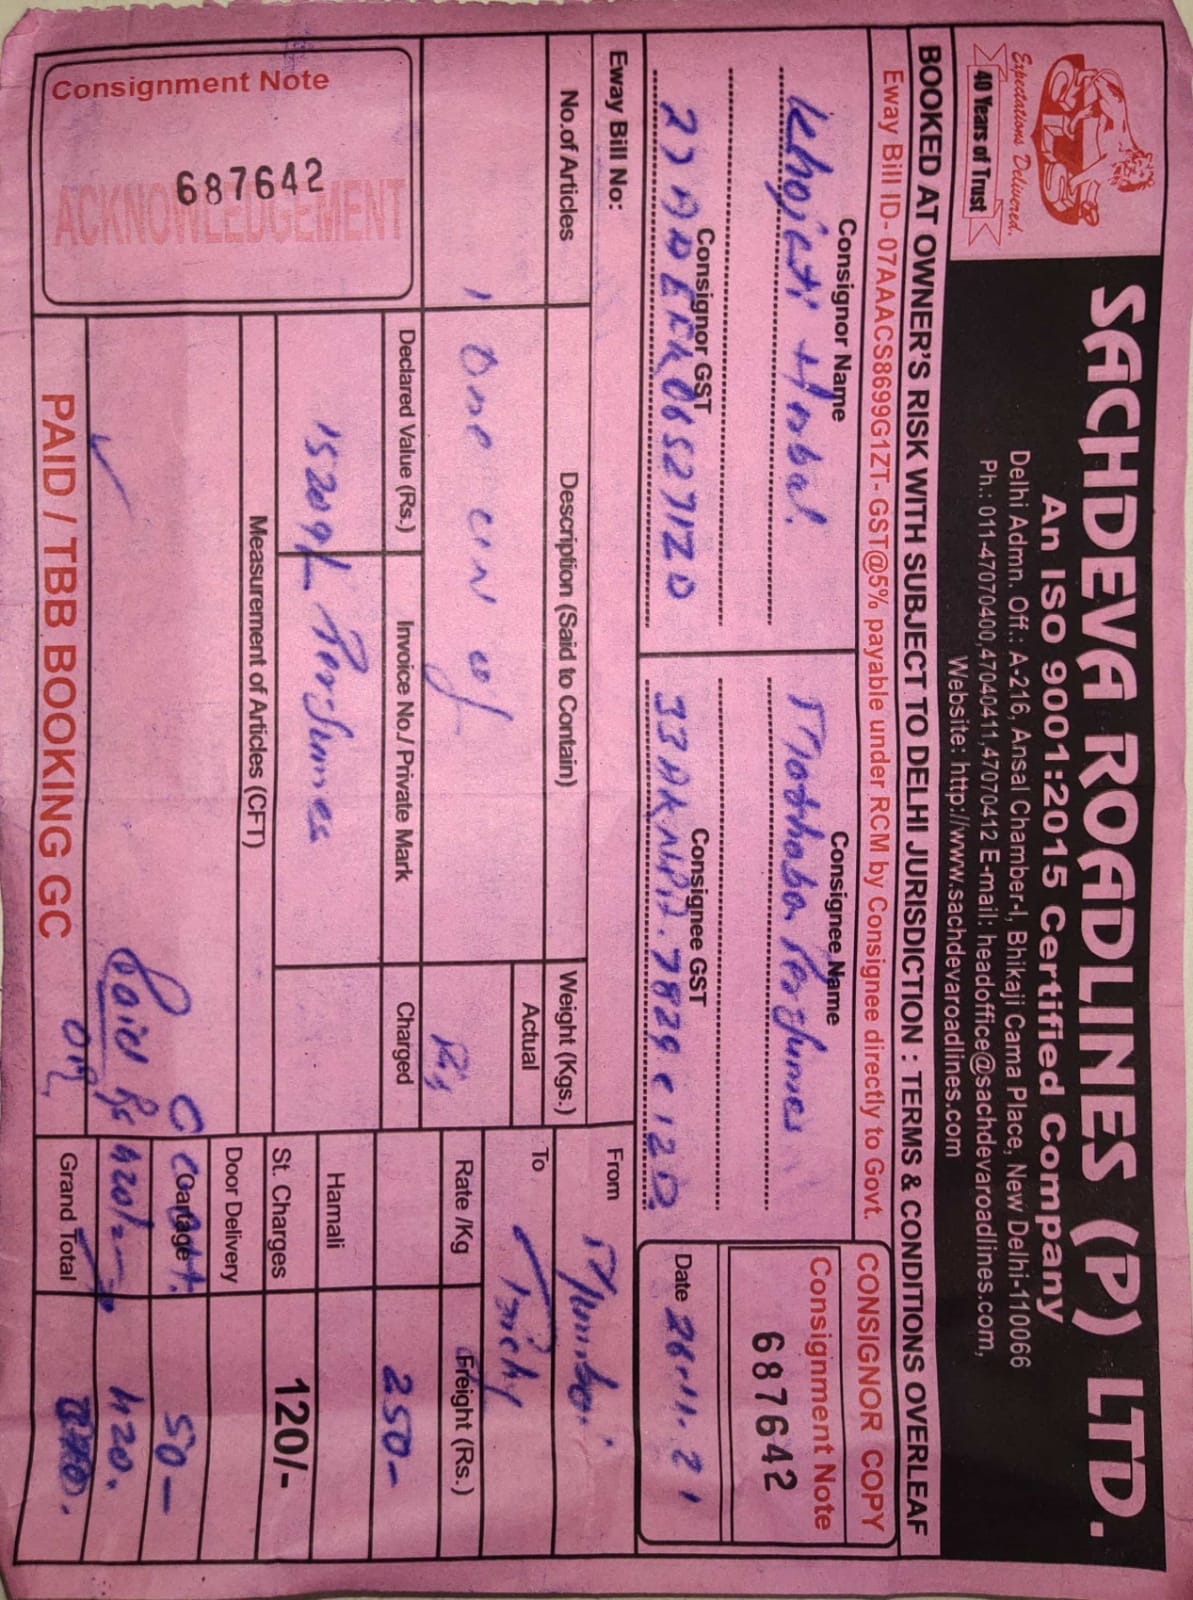 Expectations Delivered.
40 Years of Trust
SACHDEVA ROADLINES (P) LTD.
An ISO 9001:2015 Certified Company
Delhi Admn. Off.: A-216, Ansal Chamber-I, Bhikaji Cama Place, New Delhi-110066
Ph.: 011-47070400,47040411,47070412 E-mail: headoffice@sachdevaroadlines.com,
Website: http://www.sachdevaroadlines.com
BOOKED AT OWNER'S RISK WITH SUBJECT TO DELHI JURISDICTION : TERMS & CONDITIONS OVERLEAF
Eway Bill ID- 07AAACS8699G1ZT- GST@5% payable under RCM by Consignee directly to Govt.
CONSIGNOR COPY
Consignor Name
Consignee Name
Consignment Note
687642
Herbal
Perfumes
Consignor GST
Consignee GST
Date 26.11.21
Eway Bill No:
From Mumbai
No.of Articles
Description (Said to Contain)
Weight (Kgs.)
Actual
To Trichy
1 One of
Rate /Kg
Freight (Rs.)
Declared Value (Rs.)
Invoice No./ Private Mark
Charged
250-
15209/- Perfumes
Hamali
St. Charges
120/-
Measurement of Articles (CFT)
Door Delivery
Cartage
50-
Paid Rs 420/-
420.
Grand Total
Consignment Note
687642
ACKNOWLEDGEMENT
PAID / TBB BOOKING GC